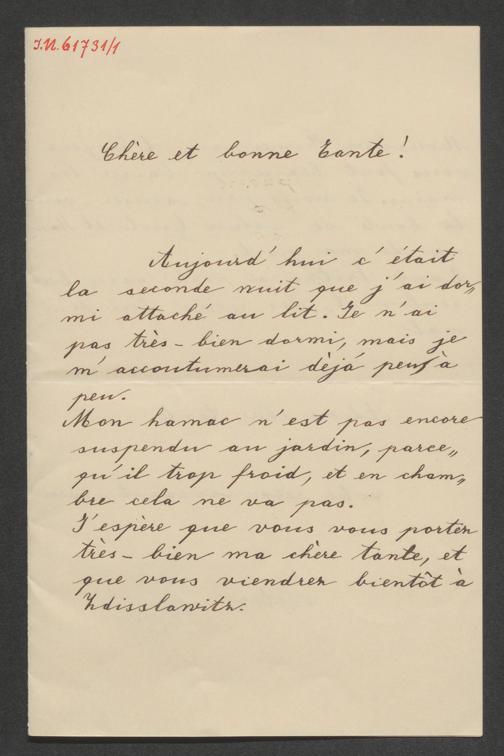 J.N. 61731/1
Chère et bonne Tante!
Aujourd'hui c'était
la seconde nuit que j'ai dor„
mi attaché au lit. Je n'ai
pas très-bien dormi, mais je
m'accoutumerai dèjá peu à
peu.
Mon hamac n'est pas encore
suspendu au jardin, parce„
qu'il trop froid, et en cham„
bre cela ne va pas.
J'espère que vous vous portez
très-bien ma chère tante, et
que vous viendrez bientôt à
Zdisslawitz.